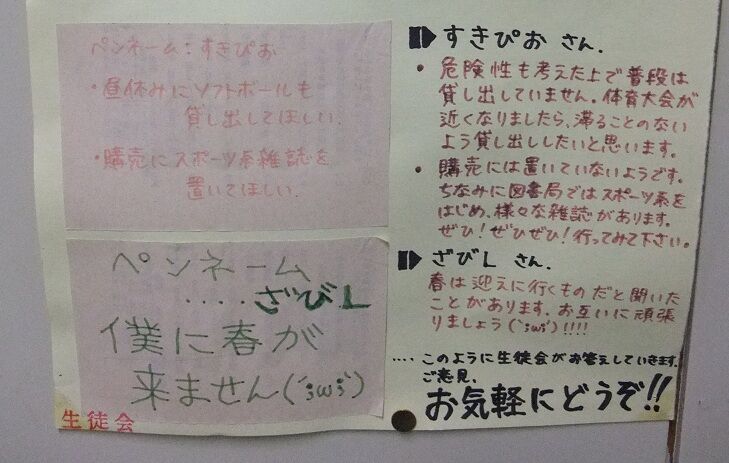 ペンネーム:すきぴお
・昼休みにソフトボールも
貸し出してほしい.
・購売にスポーツ系雑誌を
置いてほしい.
ペンネーム
....ざびL
僕に春が
来ません(´;ω;`)
生徒会
すきぴお さん.
・危険性も考えた上で普段は
貸し出していません。体育大会が
近くなりましたら、滞ることのない
よう貸し出ししたいと思います。
・購売には置いていないようです。
ちなみに図書局ではスポーツ系を
はじめ、様々な雑誌があります。
ぜひ!ぜひぜひ!行ってみて下さい。
ざびL さん.
春は迎えに行くものだと聞いた
ことがあります。お互いに頑張
りましょう(`;ω;´)!!!!
....このように生徒会がお答えしていきます。
ご意見、
お気軽にどうぞ!!